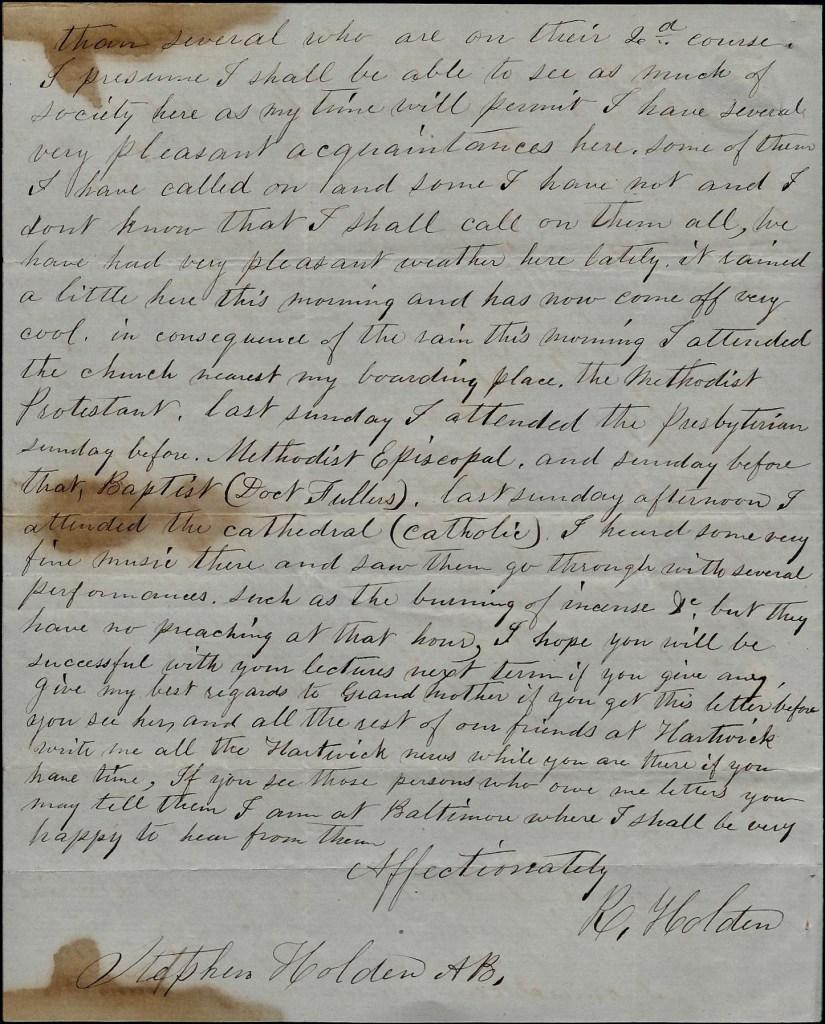 than several who are on their 2d. course.
I presume I shall be able to see as much of
society here as my time will permit I have several
very pleasant acquaintances here. some of them
I have called on and some I have not and I
dont know that I shall call on them all, We
have had very pleasant weather here lately. it rained
a little here this morning and has now come off very
cool. in consequence of the rain this morning I attended
the church nearest my boarding place. the Methodist
Protestant. last sunday I attended the Presbyterian
sunday before. Methodist Episcopal. and sunday before
that, Baptist (Doct Fullers). last sunday afternoon I
attended the cathedral (catholic). I heard some very
fine music there and saw them go through with several
performances. such as the burning of incense &c. but they
have no preaching at that hour, I hope you will be
successful with your lectures next term if you give any,
give my best regards to Grand Mother if you get this letter before
you see her, and all the rest of our friends at Hartwick
write me all the Hartwick news while you are there if you
have time, If you see those persons who owe me letters you
may tell them I am at Baltimore where I shall be very
happy to hear from them
Affectionately
R. Holden
Stephen Holden AB.